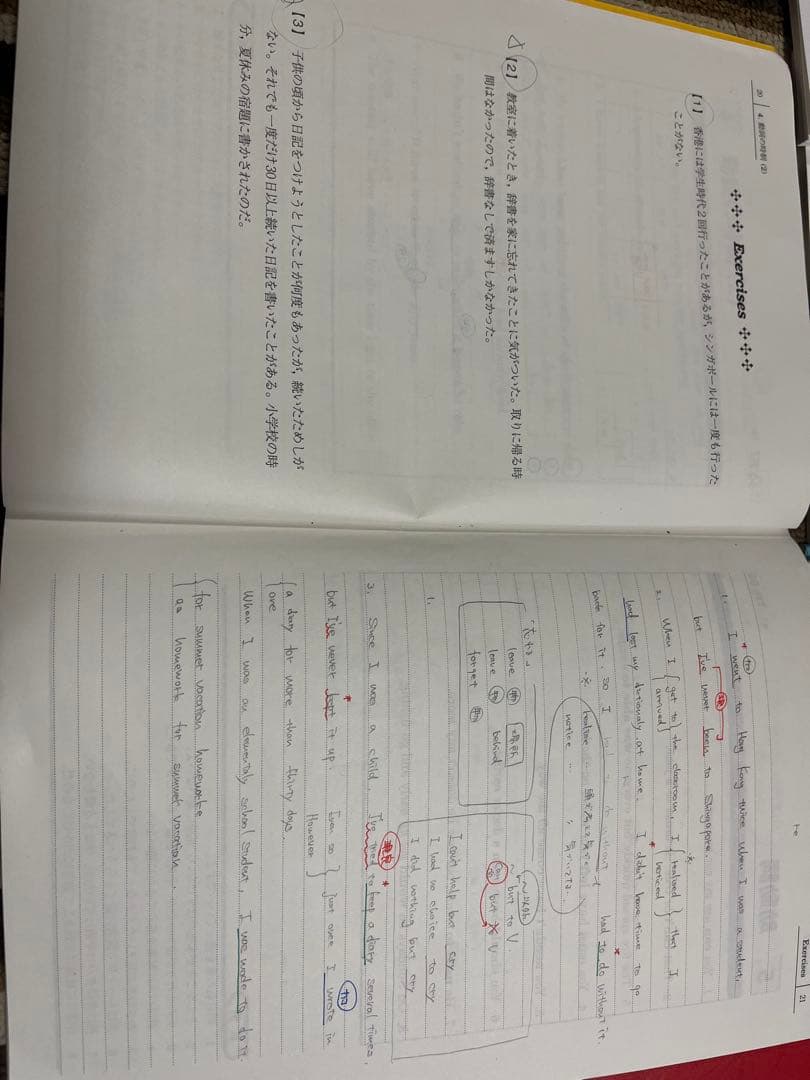 20 4. 動詞の時制 (2)
Exercises
【1】 香港には学生時代2回行ったことがあるが，シンガポールには一度も行った
ことがない。
【2】 教室に着いたとき，辞書を家に忘れてきたことに気がついた。取りに帰る時
間はなかったので，辞書なしで済ますしかなかった。
【3】 子供の頃から日記をつけようとしたことが何度もあったが，続いたためしが
ない。それでも一度だけ30日以上続いた日記を書いたことがある。小学校の時
分，夏休みの宿題に書かされたのだ。
Exercises 21
1. I went to Hong Kong twice when I was a student,
but I've never been to Shingapore.
2. When I get to the classroom, I realized that I
arrived noticed
had left my dictionaly at home. I didn't have time to go
back for it, so I had to do without it.
※ realize
notice
「忘れる」
leave 物 場所
leave 物 behind
forget 物
~ but to V
but V
1. I can't help but cry
I had no choice to cry
I did nothing but cry
3. Since I was a child, I've tried to keep a diary several times,
but I've never kept it up. Even so just once I wrote in
However
a diary for more than thirty days.
one
When I was an elementaly school student, I was made to do it
for summer vacation homeworke
as homework for summer vacation.